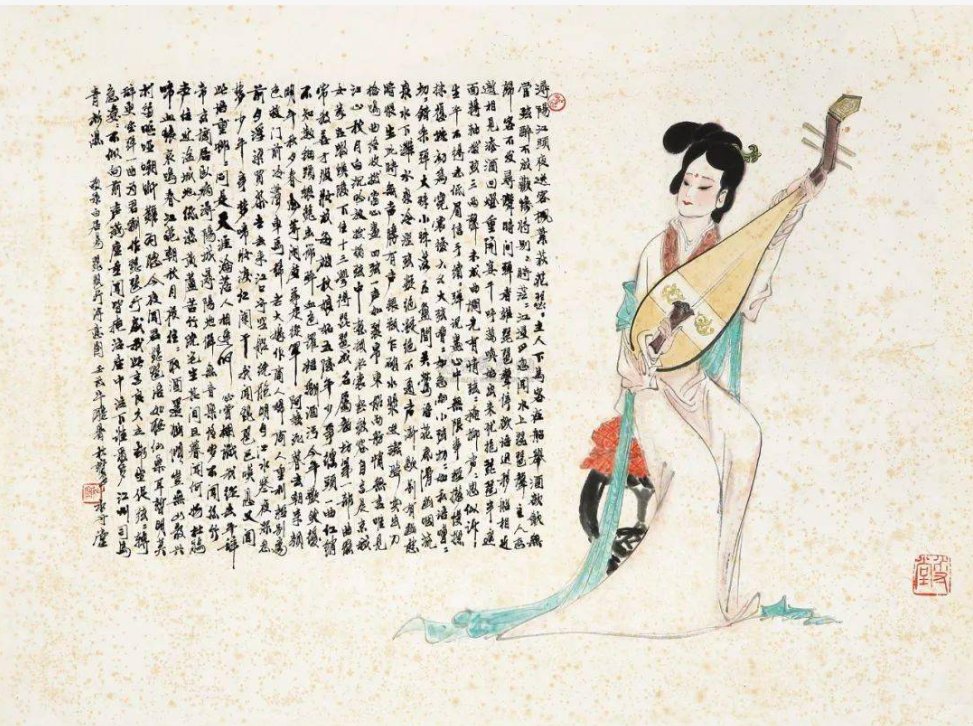 潯陽江頭夜送客楓葉荻花瑟瑟主人下馬客在船舉酒欲飲無
管弦醉不成歡慘將別別時茫茫江浸月忽聞水上琵琶聲主人忘
歸客不發尋聲暗問彈者誰琵琶聲停欲語遲移船相近
邀相見添酒回燈重開宴千呼萬喚始出來猶抱琵琶半遮
面轉軸撥弦三兩聲未成曲調先有情弦弦掩抑聲聲思似訴
生平不得志低眉信手續續彈說盡心中無限事輕攏慢撚
抹復挑初為霓裳後六么大弦嘈嘈如急雨小弦切切如私語嘈嘈
切切錯雜彈大珠小珠落玉盤間關鶯語花底滑幽咽泉流
冰下灘水泉冷澀弦凝絕凝絕不通聲漸歇別有幽愁
暗恨生此時無聲勝有聲銀瓶乍破水漿迸鐵騎突出刀
槍鳴曲終收撥當心畫四弦一聲如裂帛東船西舫悄無言唯見
江心秋月白沉吟放撥插弦中整頓衣裳起斂容自言本是京城
女家在蝦蟆陵下住十三學得琵琶成名屬教坊第一部曲罷
常教善才服妝成每被秋娘妒五陵年少爭纏頭一曲紅綃
不知數鈿頭銀篦擊節碎血色羅裙翻酒污今年歡笑復
明年秋月春風等閒度弟走從軍阿姨死暮去朝來顏
色故門前冷落車馬稀老大嫁作商人婦商人重利輕別離
前月浮梁買茶去去來江口守空船繞船明月江水寒夜深忽
夢少年事夢啼妝淚紅闌干我聞琵琶已嘆息又聞
此語重唧唧同是天涯淪落人相逢何必曾相識我從去年辭
帝京謫居臥病潯陽城潯陽地僻無音樂終歲不聞絲竹
聲住近湓城地低濕黃蘆苦竹繞宅生其間旦暮聞何物杜鵑
啼血猿哀鳴春江花朝秋月夜往往取酒還獨傾豈無山歌與
村笛嘔啞嘲哳難為聽今夜聞君琵琶語如聽仙樂耳暫明莫
辭更坐彈一曲為君翻作琵琶行感我此言良久立卻坐促弦弦轉
急淒淒不似向前聲滿座重聞皆掩泣座中泣下誰最多江州司馬
青衫濕 白居易琵琶行詩意圖